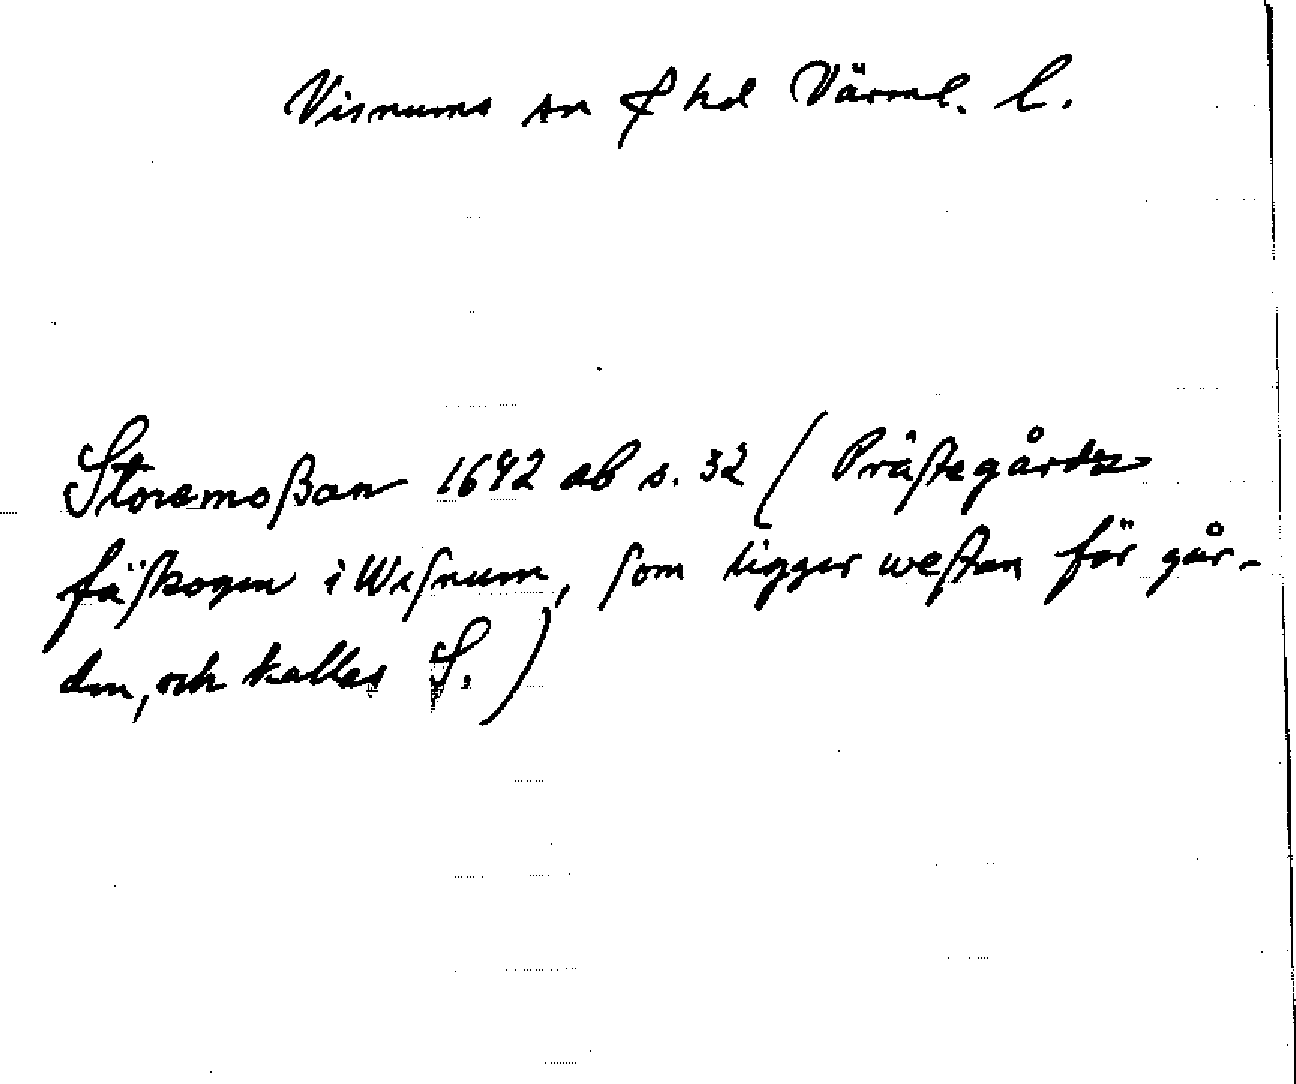 Visnums sn f hd Värml. l.
Storemoßan 1642 ab s. 32 (Prästegårdz
fäskogen i Wisnum, som ligger westan för går-
den, och kallas S.)